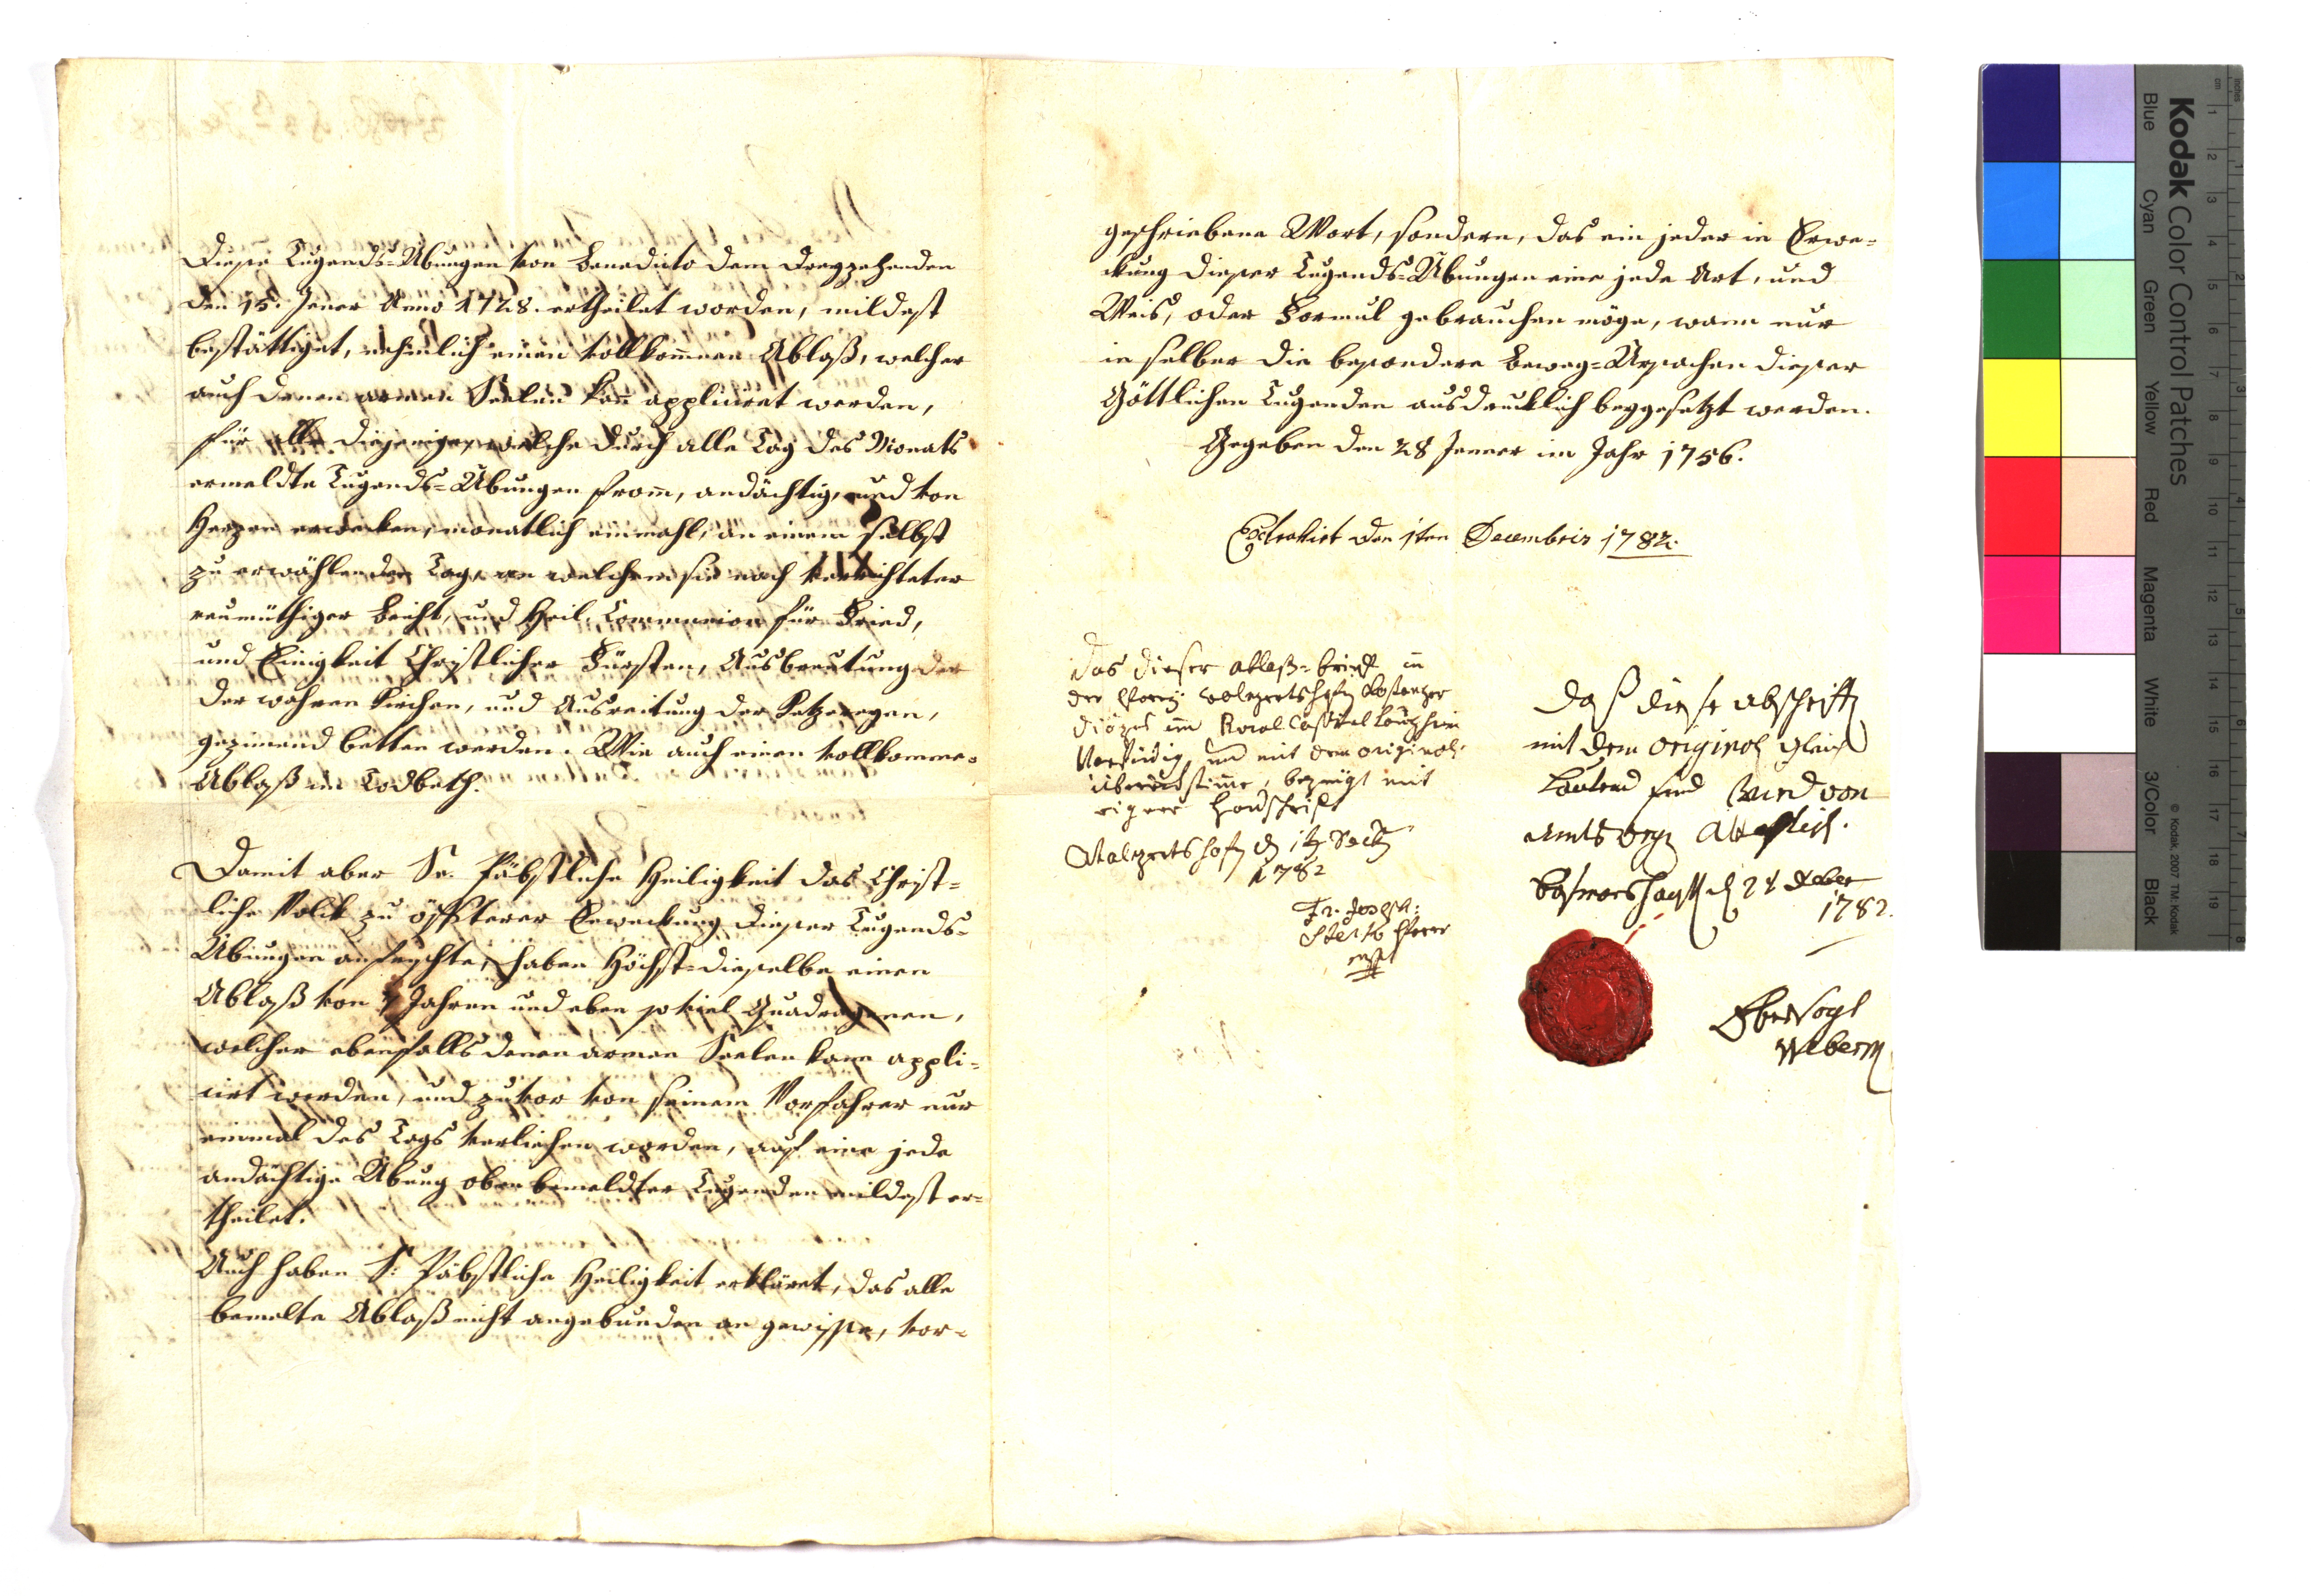 Diese Tugends-Übungen von Benedicto dem dreyzehenden
den 15. Jener Anno 1728. ertheilet worden, mildest
bestättiget, nehmlich einen vollkommen Ablaß, welcher
auch denen armen Seelen kan appliciret werden,
für alle diejenige, welche durch alle Tag des Monats
ermeldte Tugends-Übungen from, andächtig, und von
Herzen erwecken, monatlich einmahl, an einem selbst
zu erwählenden Tag, an welchem sie nach verrichteter
reumüthiger Beicht, und Heil. Communion für Fried,
und Einigkeit Christlicher Fürsten, Ausbreutung der
der wahren Kirchen, und Ausreitung der Ketzereyen,
gezimend betten werden. Wie auch einen vollkomme-
Ablaß im Todbeth.
Damit aber Se. Päbstliche Heiligkeit das Christ-
liche Volck zu öffterer Erweckung dieser Tugends-
Übungen anfrischte, haben Höchst-dieselbe einen
Ablaß von 7 Jahren und eben so viel Quadragenen,
welcher ebenfalls denen armen Seelen kann appli-
cirt werden, und zuvor von seinem Vorfahrer nur
einmal des Tags verliehen worden, auf eine jede
andächtige Übung oben bemeldter Tugenden mildest er-
theilet.
Auch haben S: Päbstliche Heiligkeit erkläret, das alle
bemelte Ablaß nicht angebunden an gewisse, vor-
geschriebene Wort, sondern, das ein jeder in Erwe-
ckung dieser Tugends-Übungen eine jede Art, und
Weis, oder Formul gebrauchen möge, wann nur
in selber die besondere Beweg-Ursachen dieser
Göttlichen Tugenden ausdrucklich beygesetzt werden.
Gegeben den 28 Jenner im Jahr 1756.
Extrahirt den 1ten Decembris 1782.
das dieser ablaß-brieff in
der Pfarrey
diözes im Rural Capitel
und mit dem original
übereinstimme, bezeugt mit
eigner Handschrift
1782
Fr. Joseph:
Pfarrer
Daß diese abschrifft
mit dem original gleich
Lautend seye wird von
amts weg attestirt.
d 24 Xber
1782.
Obervogt